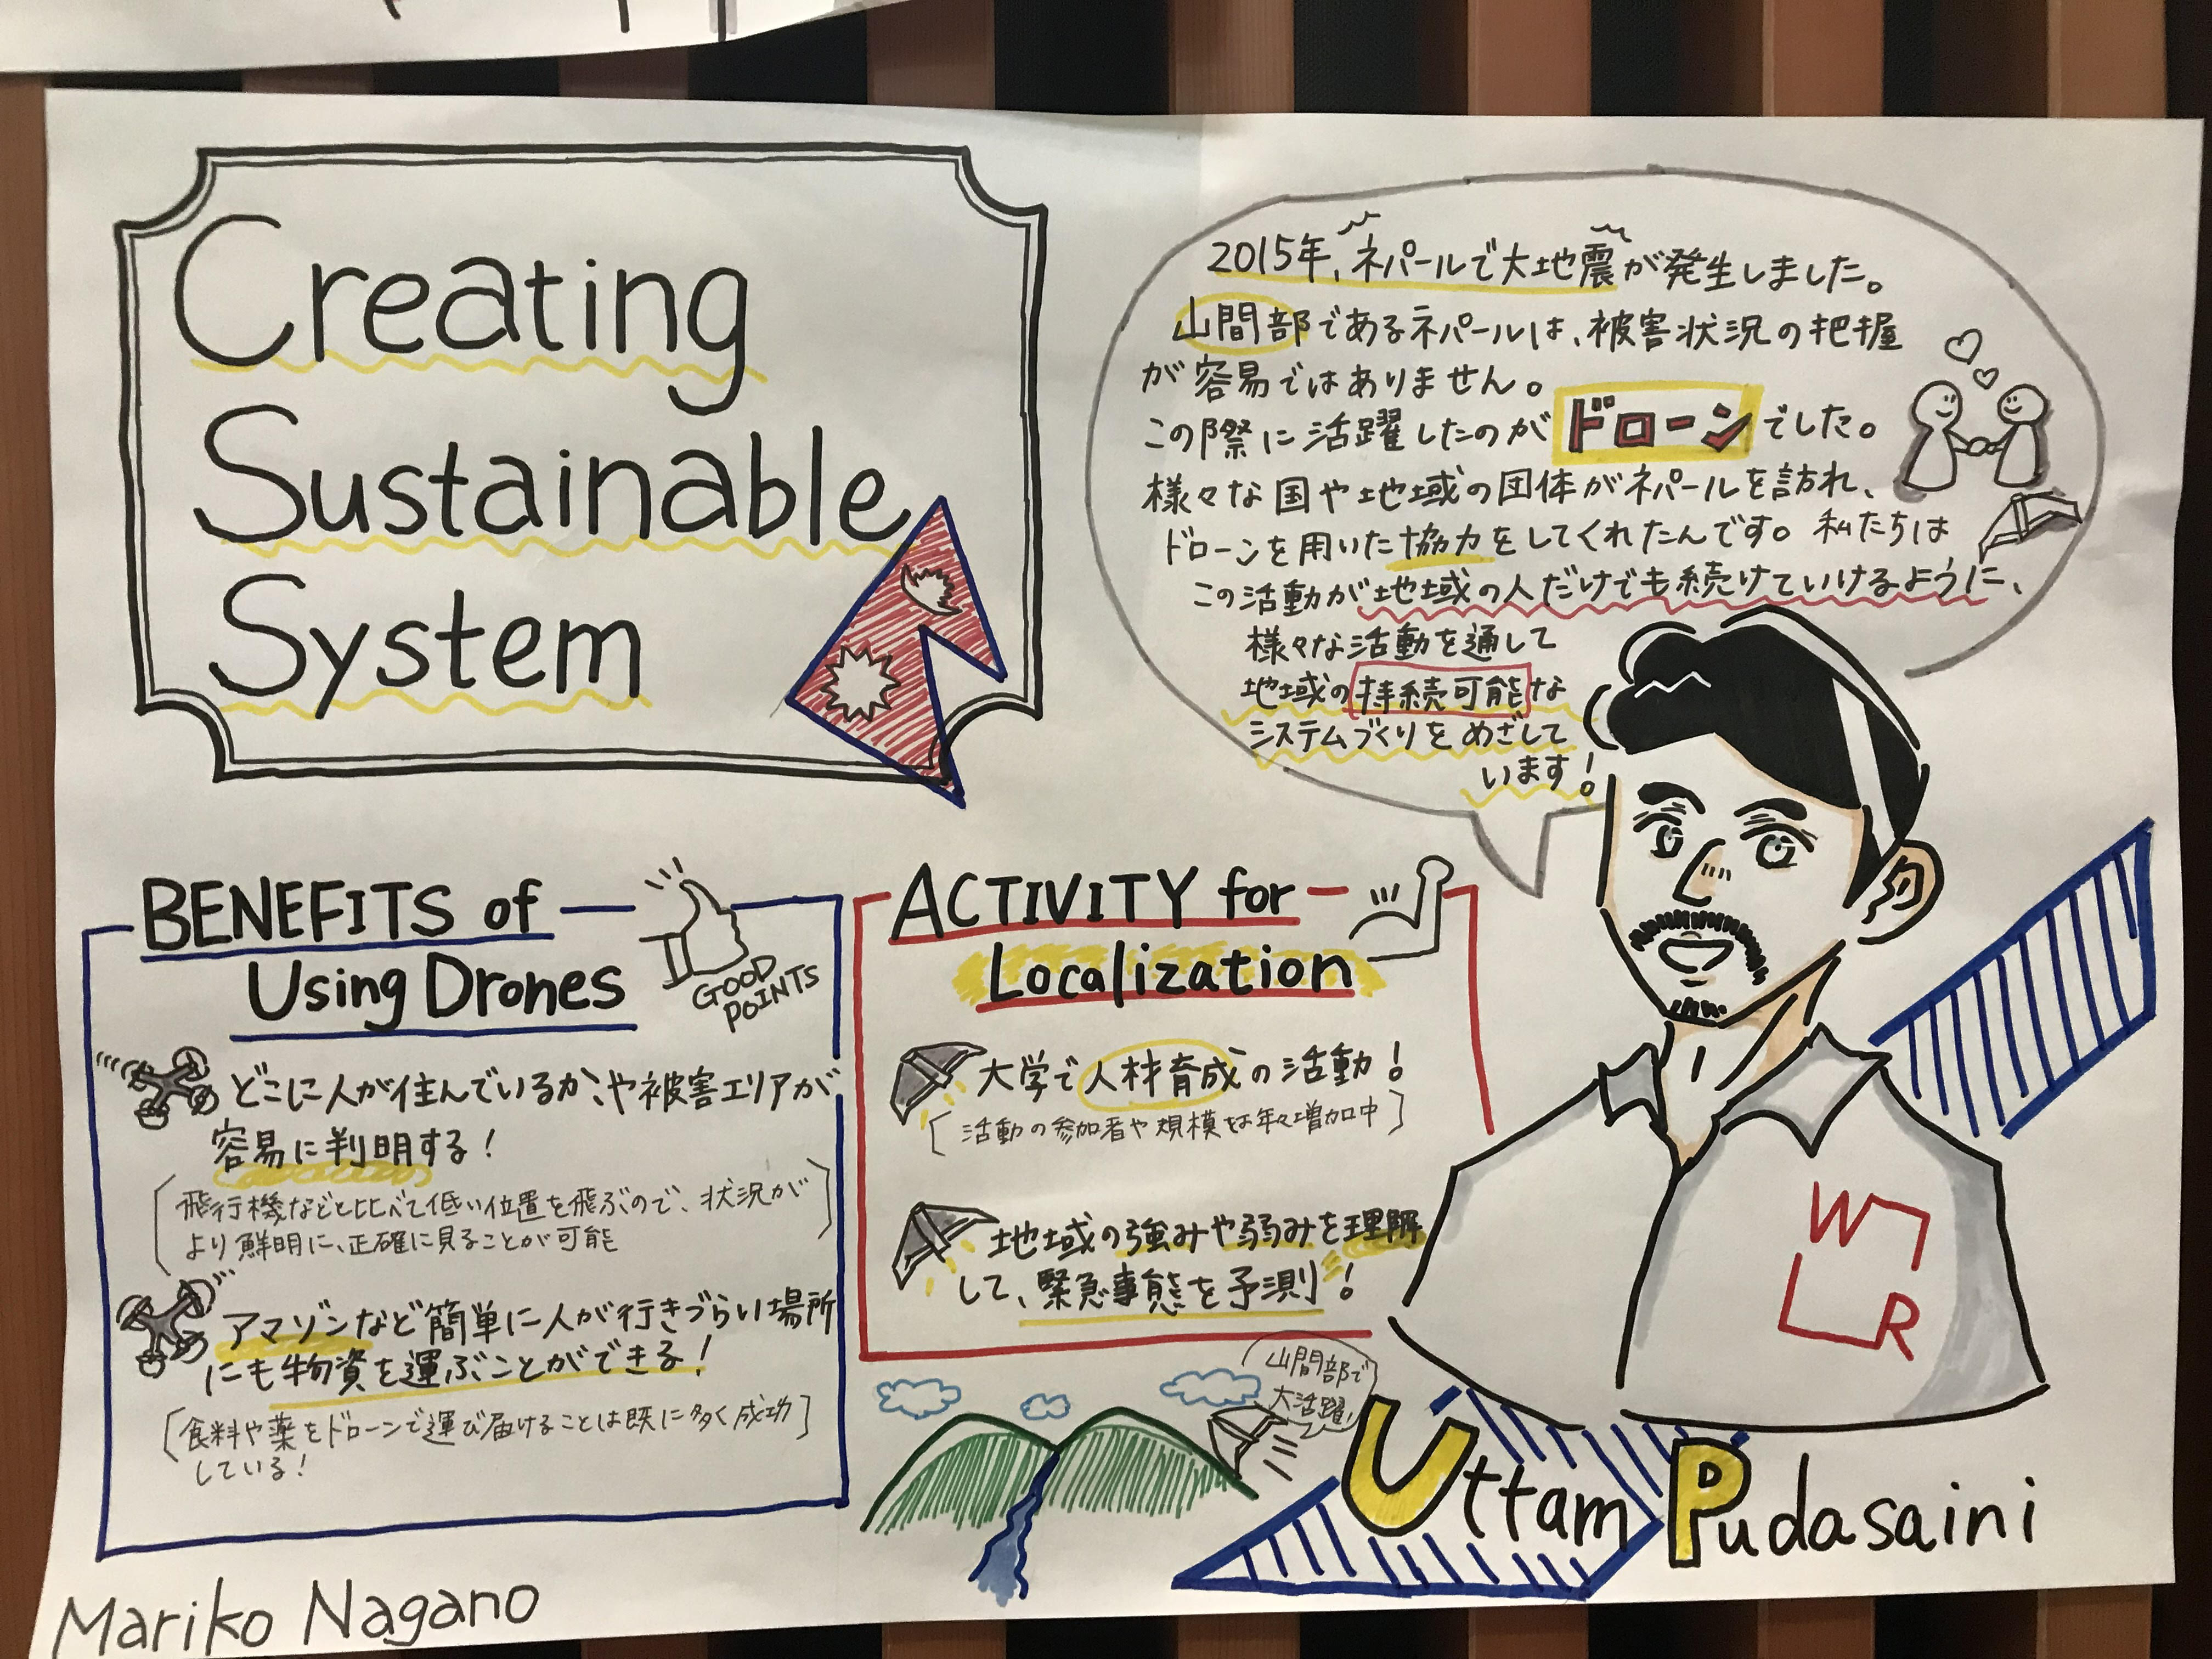 Creating
Sustainable
System
2015年、ネパールで大地震が発生しました。
山間部であるネパールは、被害状況の把握
が容易ではありません。
この際に活躍したのがドローンでした。
様々な国や地域の団体がネパールを訪れ、
ドローンを用いた協力をしてくれたんです。私たちは
この活動が地域の人だけでも続けていけるように、
様々な活動を通して
地域の持続可能な
システムづくりをめざして
います!
BENEFITS of
Using Drones
GOOD
POINTS
どこに人が住んでいるか、や被害エリアが
容易に判明する!
[飛行機などと比べて低い位置を飛ぶので、状況が
より鮮明に、正確に見ることが可能]
アマゾンなど簡単に人が行きづらい場所
にも物資を運ぶことができる!
[食料や薬をドローンで運び届けることは既に多く成功
している!]
ACTIVITY for
Localization
大学で人材育成の活動!
[活動の参加者や規模は年々増加中]
地域の強みや弱みを理解
して、緊急事態を予測!
山間部で
大活躍!
W
R
Uttam Pudasaini
Mariko Nagano